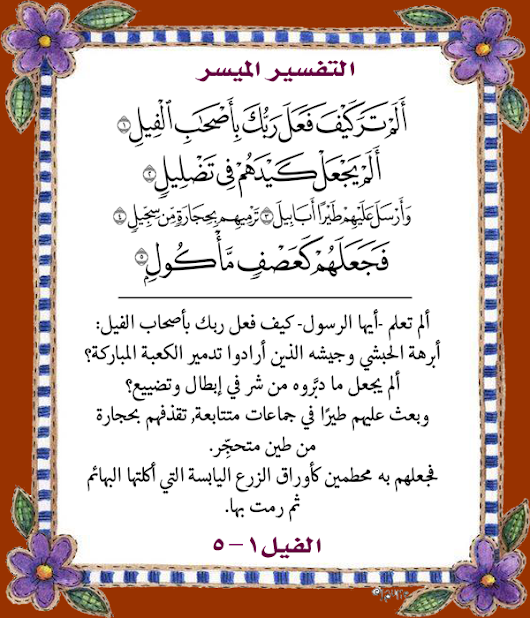 التفسير الميسر
أَلَمْ تَرَ كَيْفَ فَعَلَ رَبُّكَ بِأَصْحَابِ الْفِيلِ ١
أَلَمْ يَجْعَلْ كَيْدَهُمْ فِي تَضْلِيلٍ ٢
وَأَرْسَلَ عَلَيْهِمْ طَيْرًا أَبَابِيلَ ٣ تَرْمِيهِم بِحِجَارَةٍ مِّن سِجِّيلٍ ٤
فَجَعَلَهُمْ كَعَصْفٍ مَّأْكُولٍ ٥
ألم تعلم -أيها الرسول- كيف فعل ربك بأصحاب الفيل:
أبرهة الحبشي وجيشه الذين أرادوا تدمير الكعبة المباركة؟
ألم يجعل ما دبَّروه من شر في إبطال وتضييع؟
وبعث عليهم طيرًا في جماعات متتابعة, تقذفهم بحجارة
من طين متحجِّر.
فجعلهم به محطمين كأوراق الزرع اليابسة التي أكلتها البهائم
ثم رمت بها.
الفيل ١ – ٥